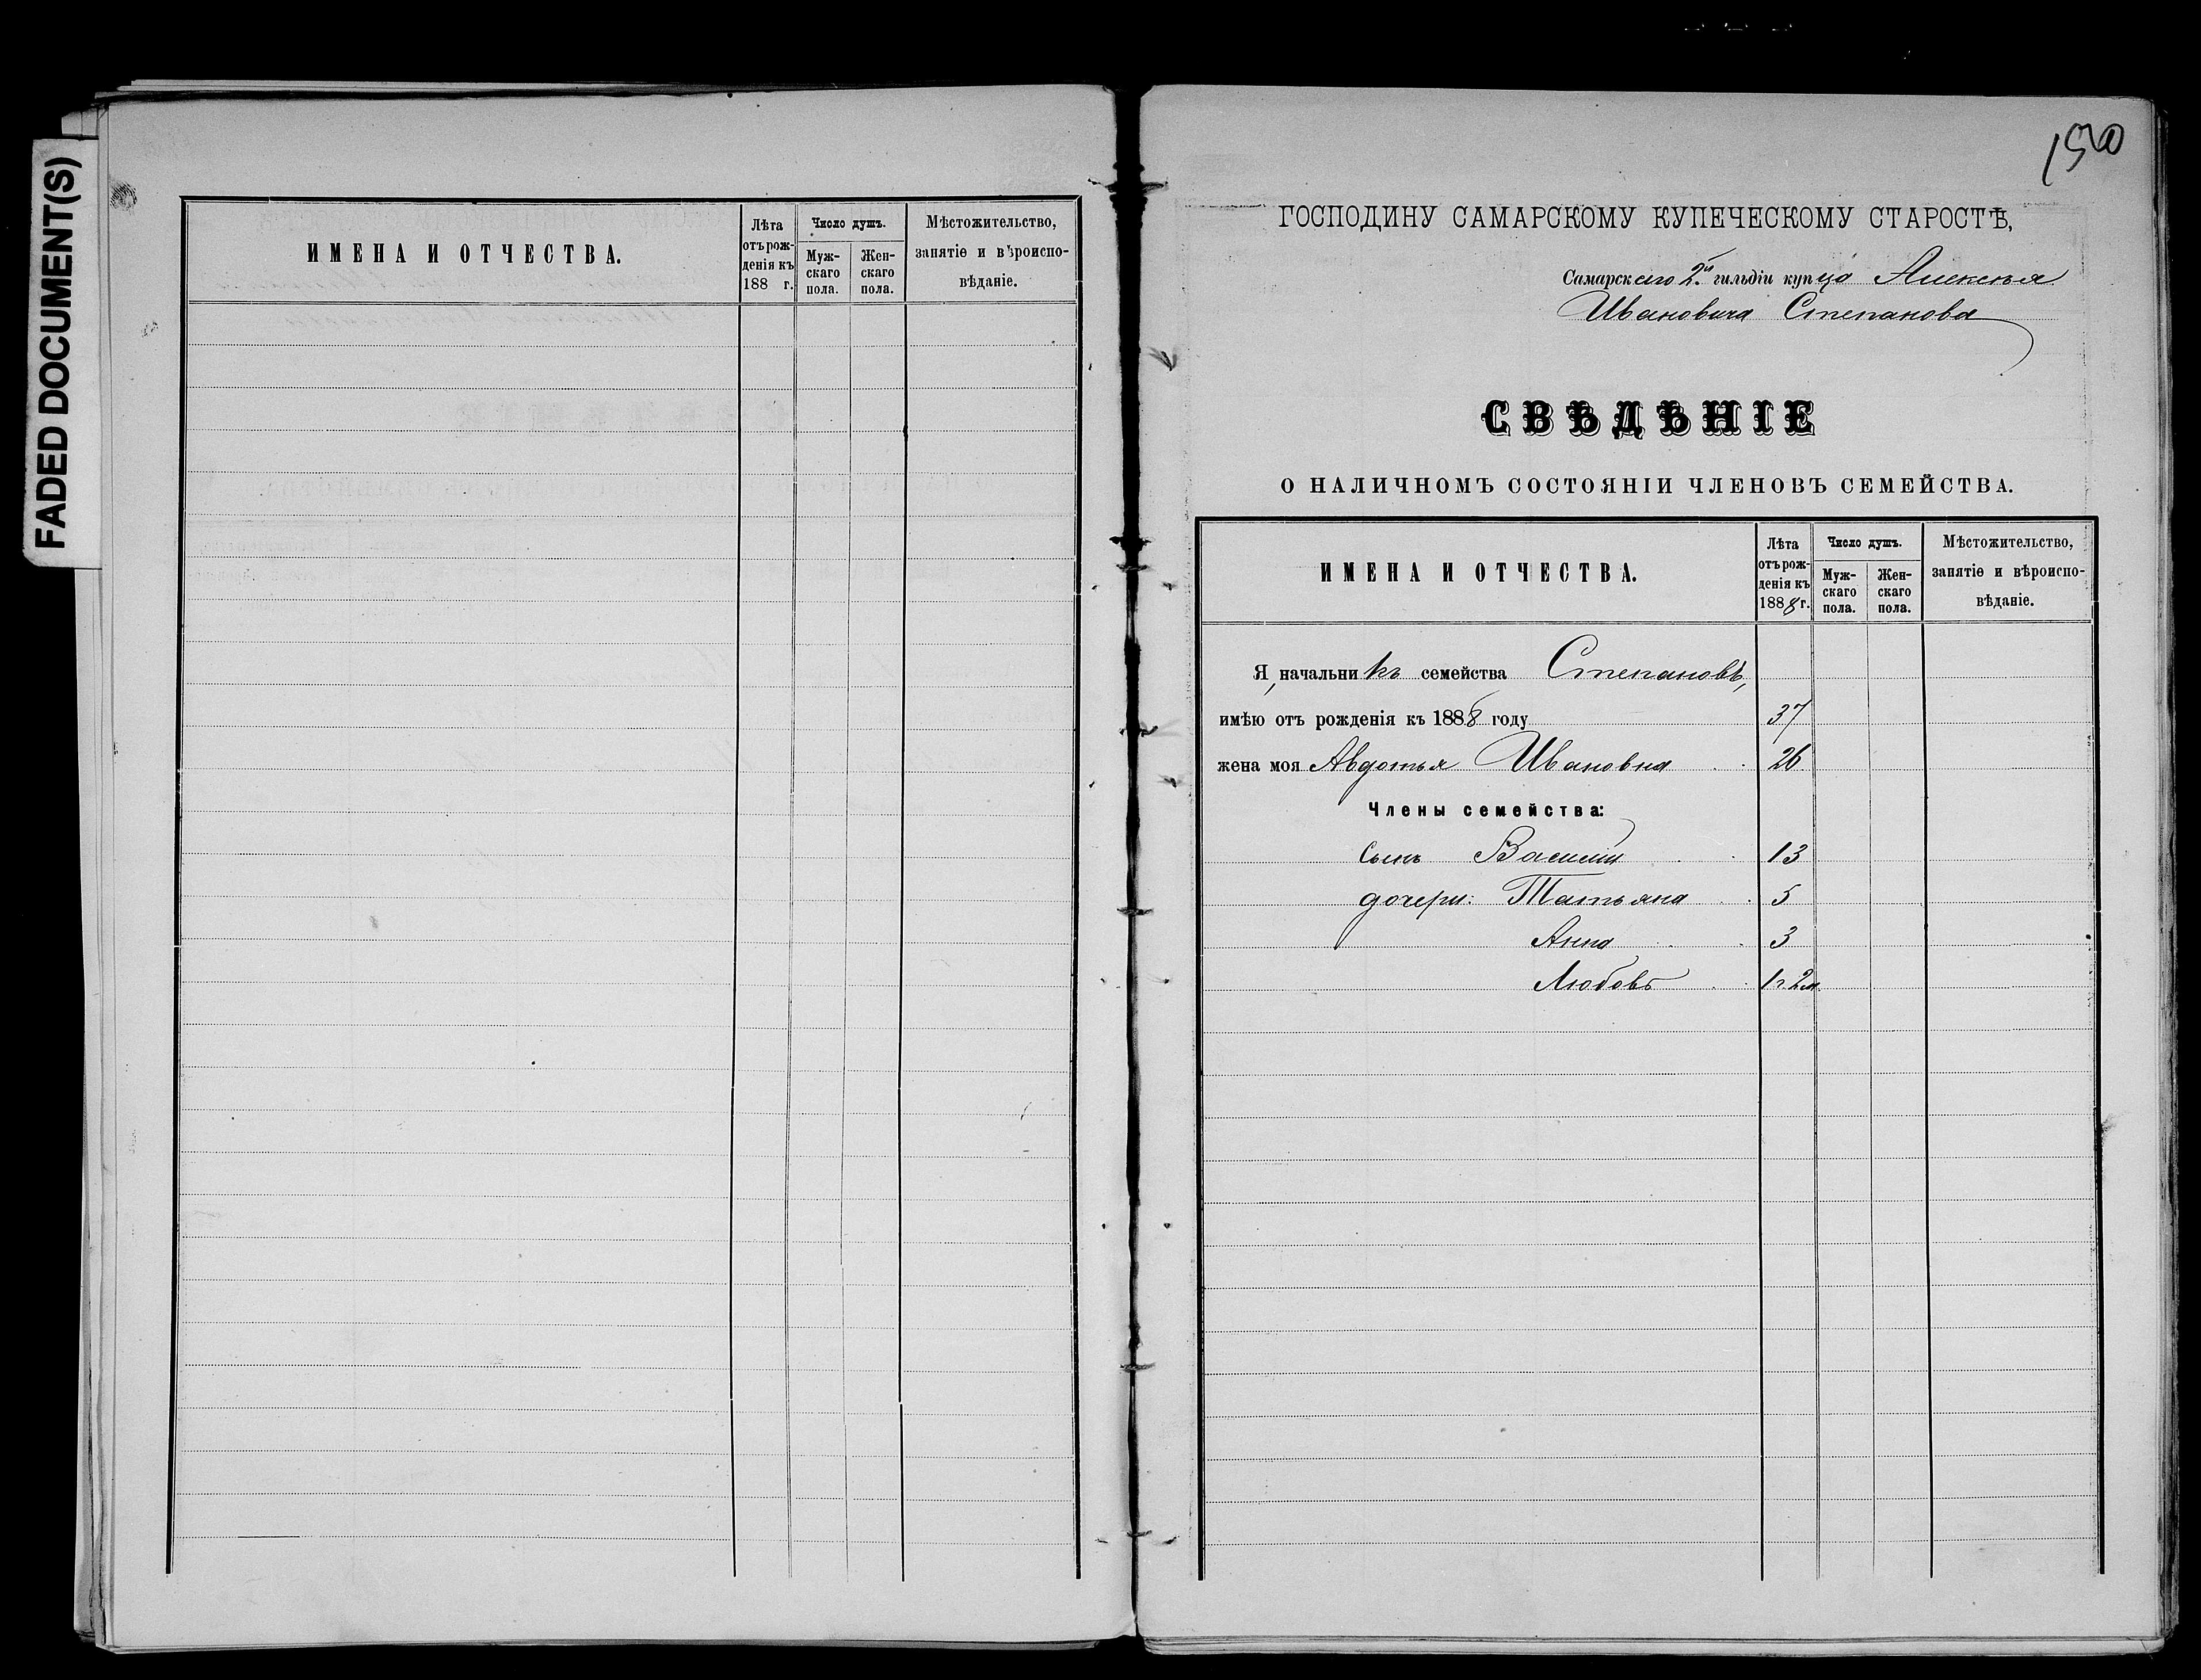 FADED DOCUMENT(S)
ИМЕНА И ОТЧЕСТВА.
Лѣта
отъ рож-
денія къ
188 г.
Число душъ.
Муж-
скаго
пола.
Жен-
скаго
пола.
Мѣстожительство,
занятіе и вѣроиспо-
вѣданіе.
150
ГОСПОДИНУ САМАРСКОМУ КУПЕЧЕСКОМУ СТАРОСТѢ,
Самарскаго 2й гильдіи купца Алексѣя
Ивановича Степанова
СВѢДѢНІЕ
О НАЛИЧНОМЪ СОСТОЯНІИ ЧЛЕНОВЪ СЕМЕЙСТВА.
ИМЕНА И ОТЧЕСТВА.
Лѣта
отъ рож-
денія къ
1888 г.
Число душъ.
Муж-
скаго
пола.
Жен-
скаго
пола.
Мѣстожительство,
занятіе и вѣроиспо-
вѣданіе.
Я, начальникъ семейства Степановъ,
имѣю отъ рожденія къ 1888 году 37
жена моя Авдотья Ивановна 26
Члены семейства:
Сынъ Василій 13
дочери: Татьяна 5
Анна 3
Любовь 1 г. 2 м